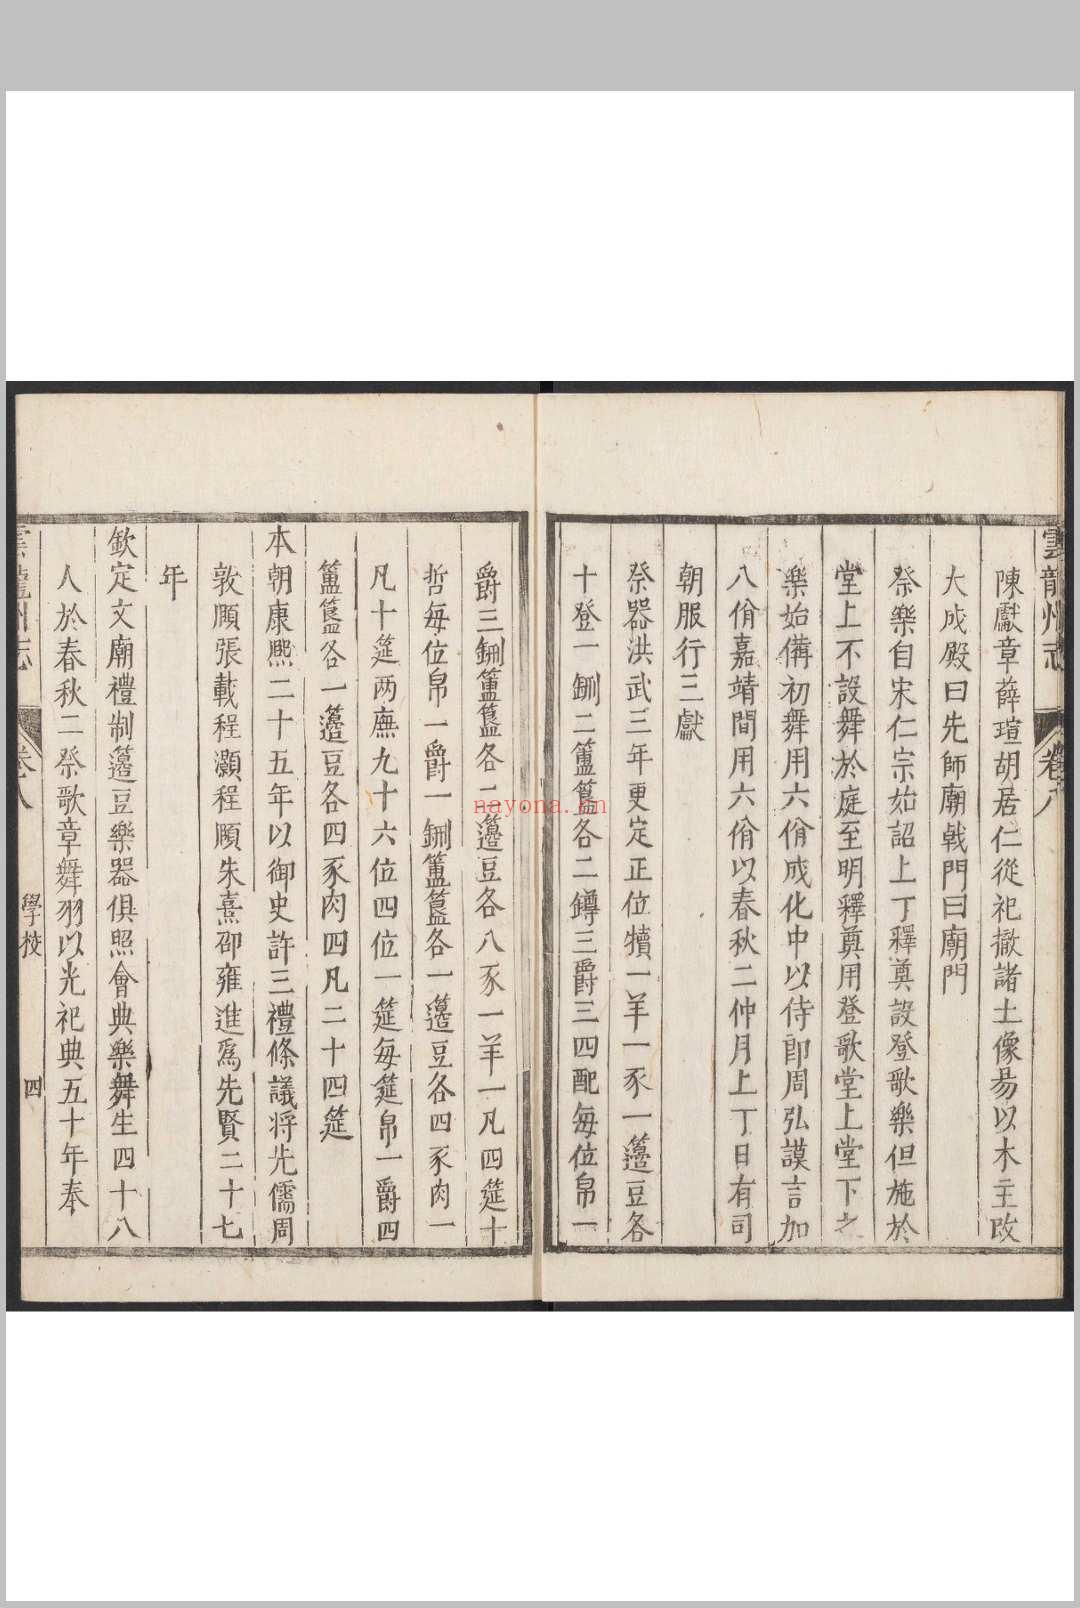 雲龍州志
卷八
陳獻章薛瑄胡居仁從祀撤諸土像易以木主改
大成殿曰先師廟戟門曰廟門
祭樂自宋仁宗始詔上丁釋奠設登歌樂但施於
堂上不設舞於庭至明釋奠用登歌堂上堂下之
樂始備初舞用六佾成化中以侍郎周弘謨言加
八佾嘉靖間用六佾以春秋二仲月上丁日有司
朝服行三獻
祭器洪武三年更定正位犢一羊一豕一籩豆各
十登一鉶二簠簋各二罇三爵三四配每位帛一
爵三鉶簠簋各二籩豆各八豕一羊一凡四筵十
哲每位帛一爵一鉶簠簋各一籩豆各四豕肉一
凡十筵两廡九十六位四位一筵每筵帛一爵四
簠簋各一籩豆各四豕肉四凡二十四筵
本朝康熙二十五年以御史許三禮條議将先儒周
敦頤張載程灝程頤朱熹邵雍進爲先賢二十七
年
欽定文廟禮制籩豆樂器俱照會典樂舞生四十八
人於春秋二祭歌章舞羽以光祀典五十年奉
雲龍州志
卷八
學校
四
nayona.cn